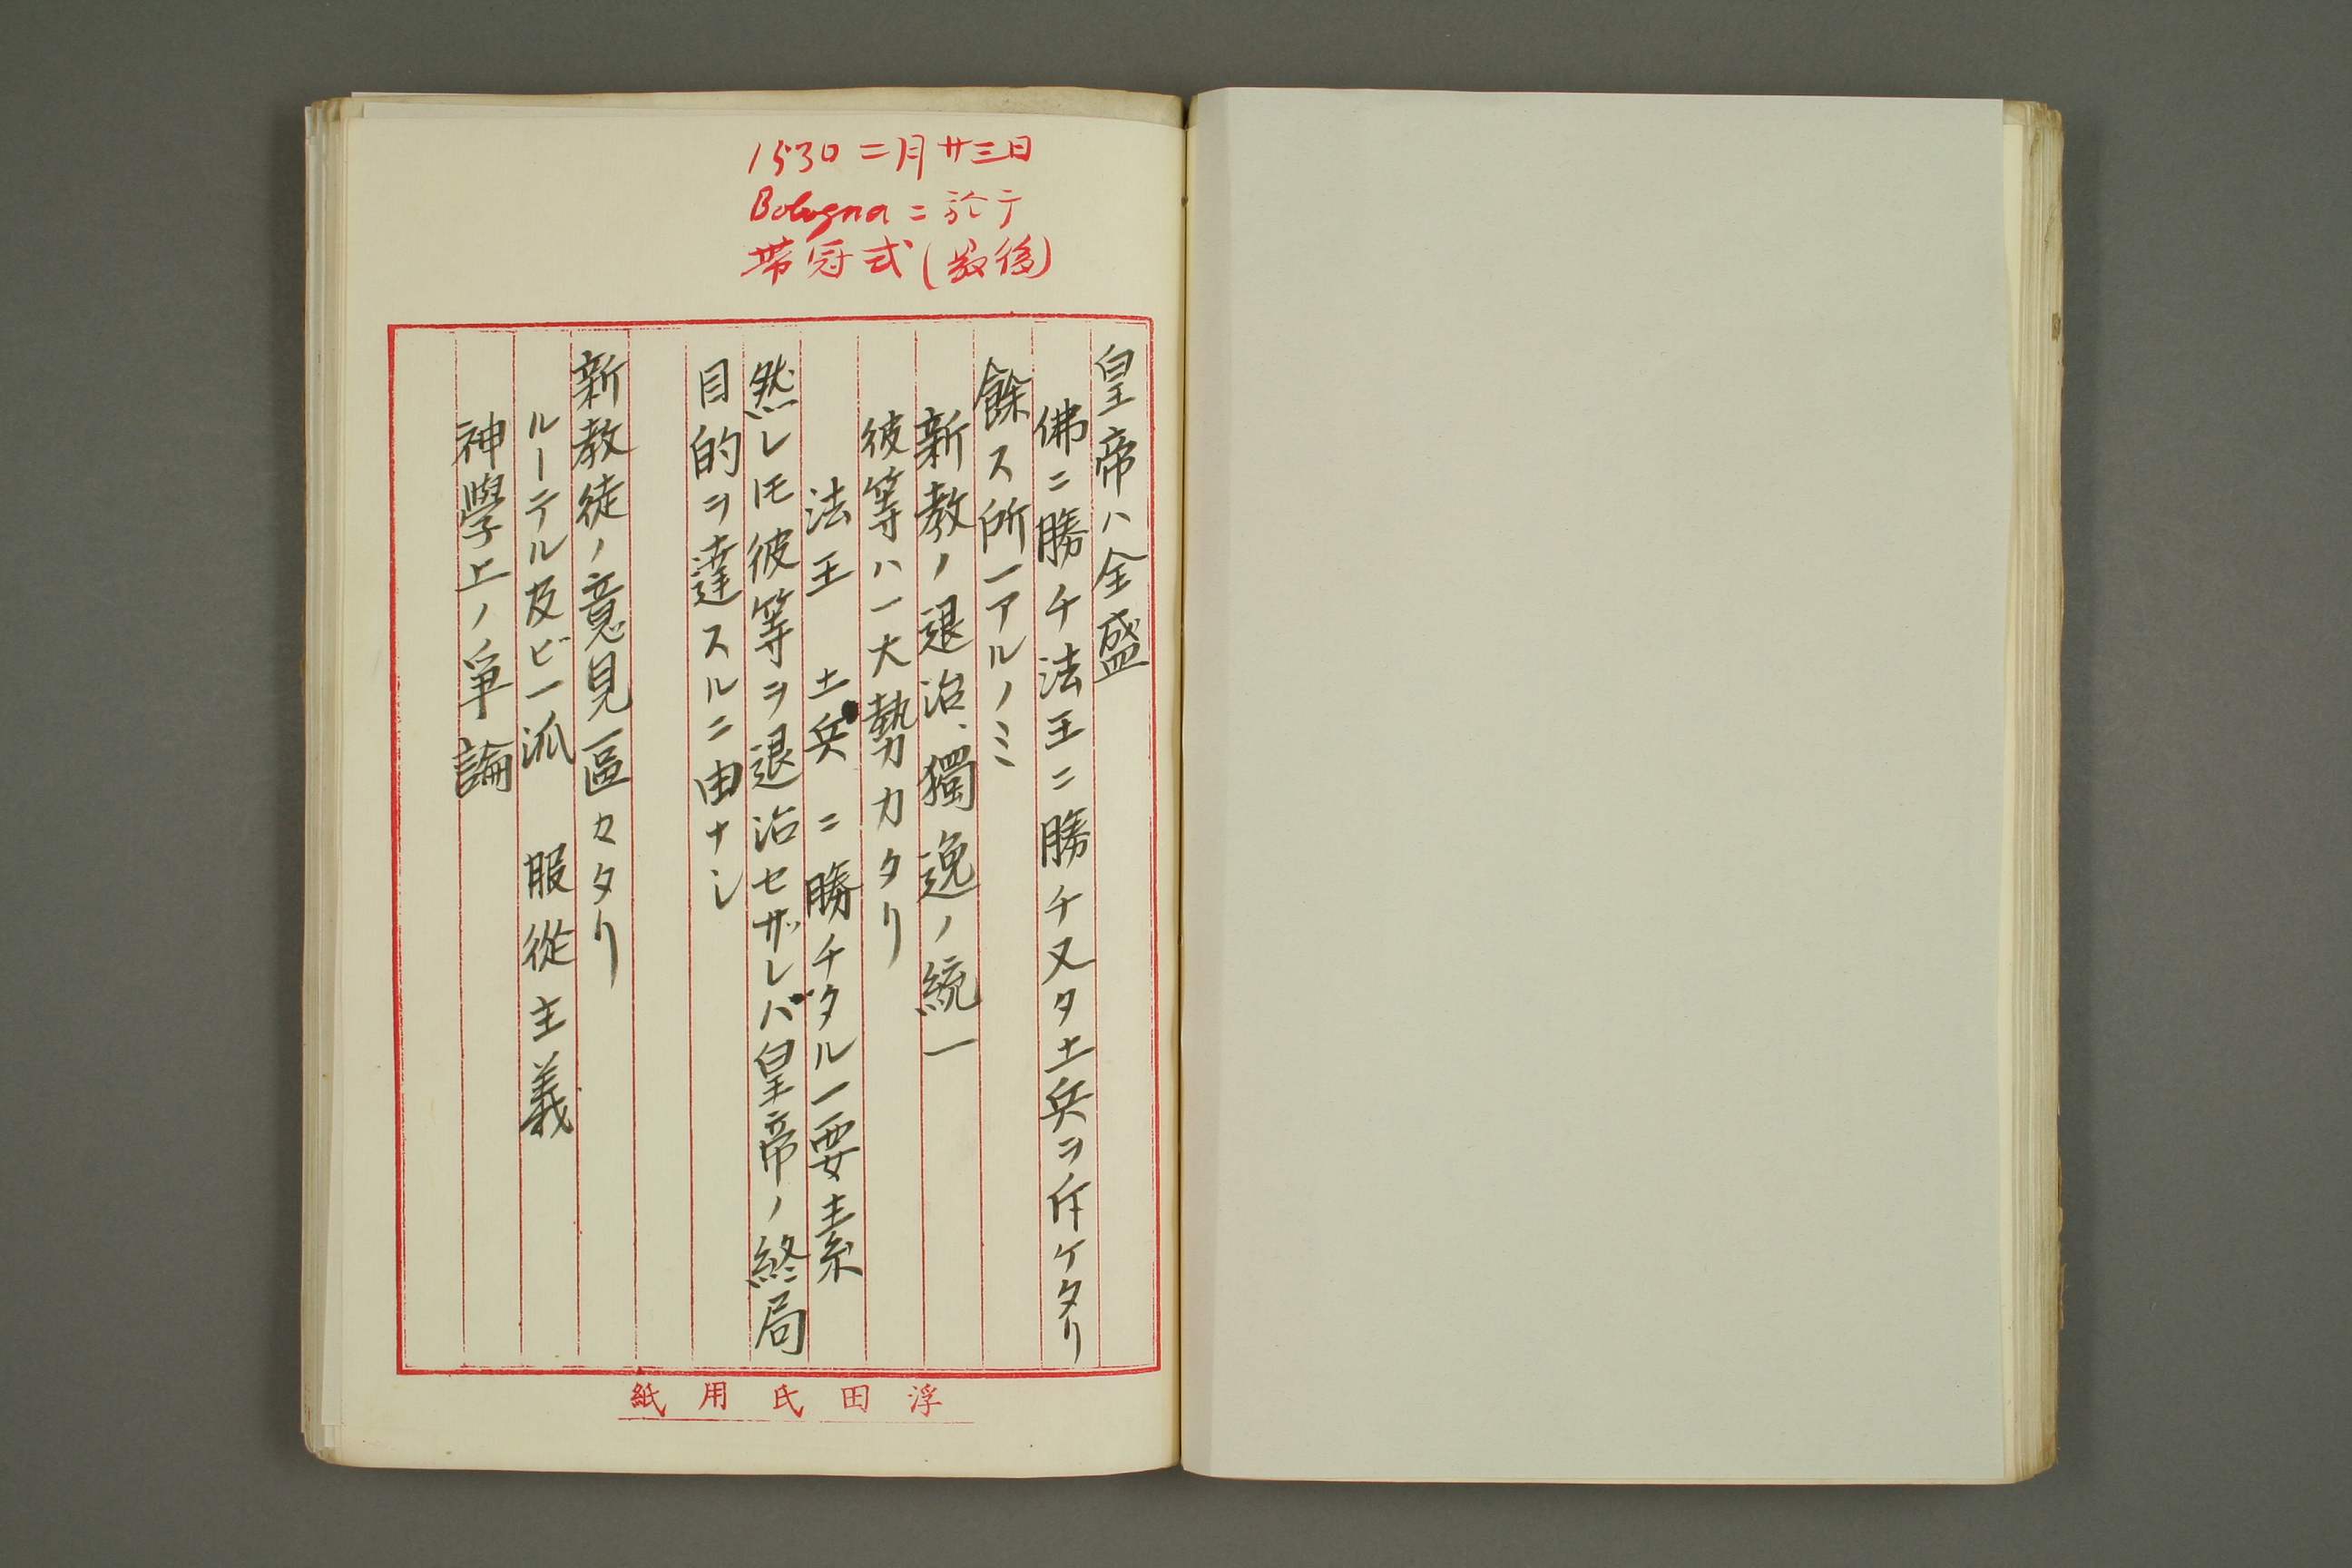 1530二月廿三日
Bologna ニ於テ
帯冠式(最後)
皇帝ハ全盛
佛ニ勝チ法王ニ勝チ又タ土兵ヲ斥ケタリ
餘ス所一アルノミ
新教ノ退治、獨逸ノ統一
彼等ハ一大勢力カタリ
法王 土兵 ニ勝チタル一要素
然レ𪜈彼等ヲ退治セザレバ皇帝ノ終局
目的ヲ達スルニ由ナシ
新教徒ノ意見區々タリ
ルーテル及ビ一派 服從主義
神學上ノ爭論
浮田氏用紙